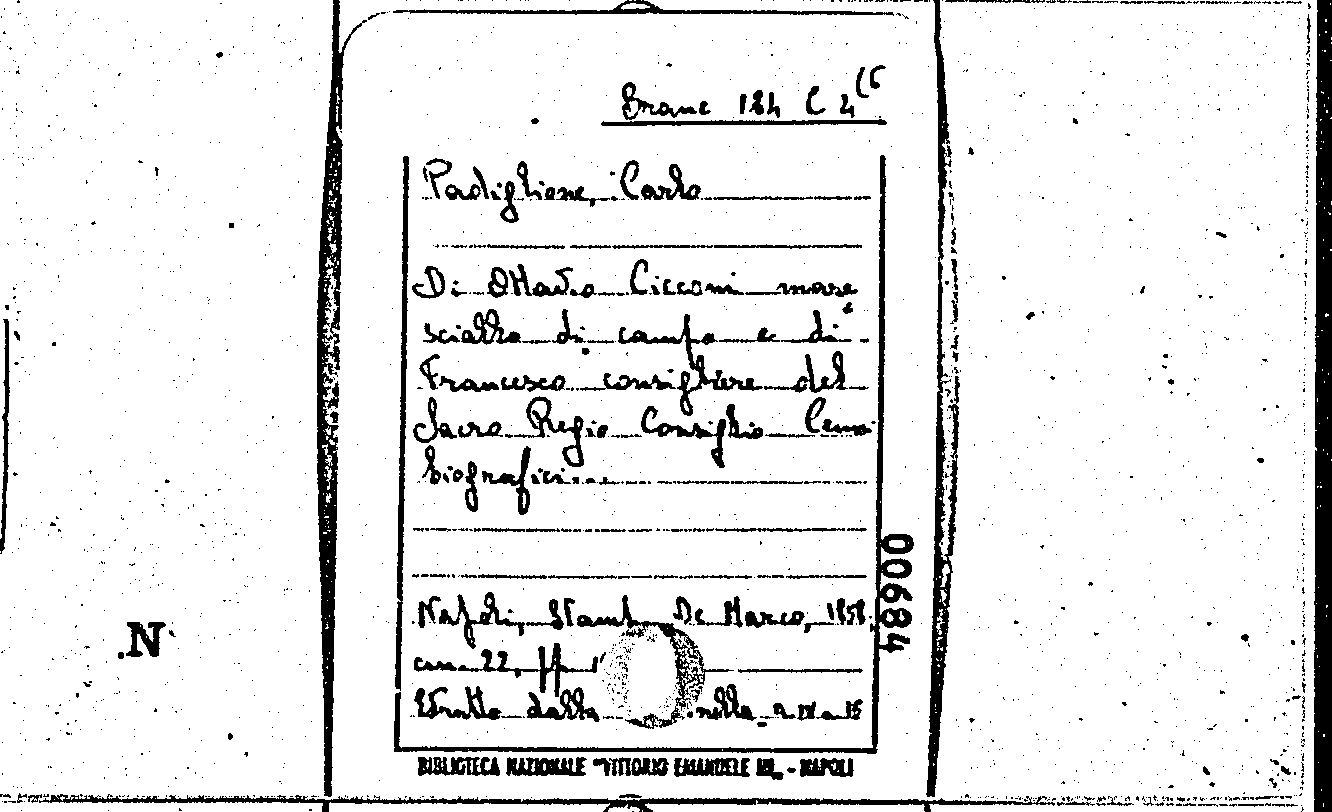 Branc 184 C 4 (6
Padiglione, Carlo
Di Ottavio Cicconi mare
sciallo di campo e di
Francesco consigliere del
Sacro Regio Consiglio Cenni
biografici...
Napoli, Stamp. De Marco, 1858,
cm. 22, pp.
Estratto dalla
BIBLIOTECA NAZIONALE "VITTORIO EMANUELE III" - NAPOLI
00684
.N